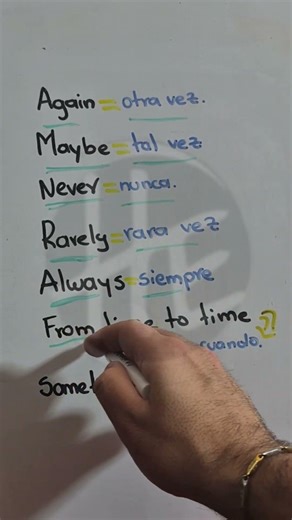 Again = otra vez.
Maybe = tal vez
Never = nunca.
Rarely = rara vez
Always = siempre
From time to time
cuando.